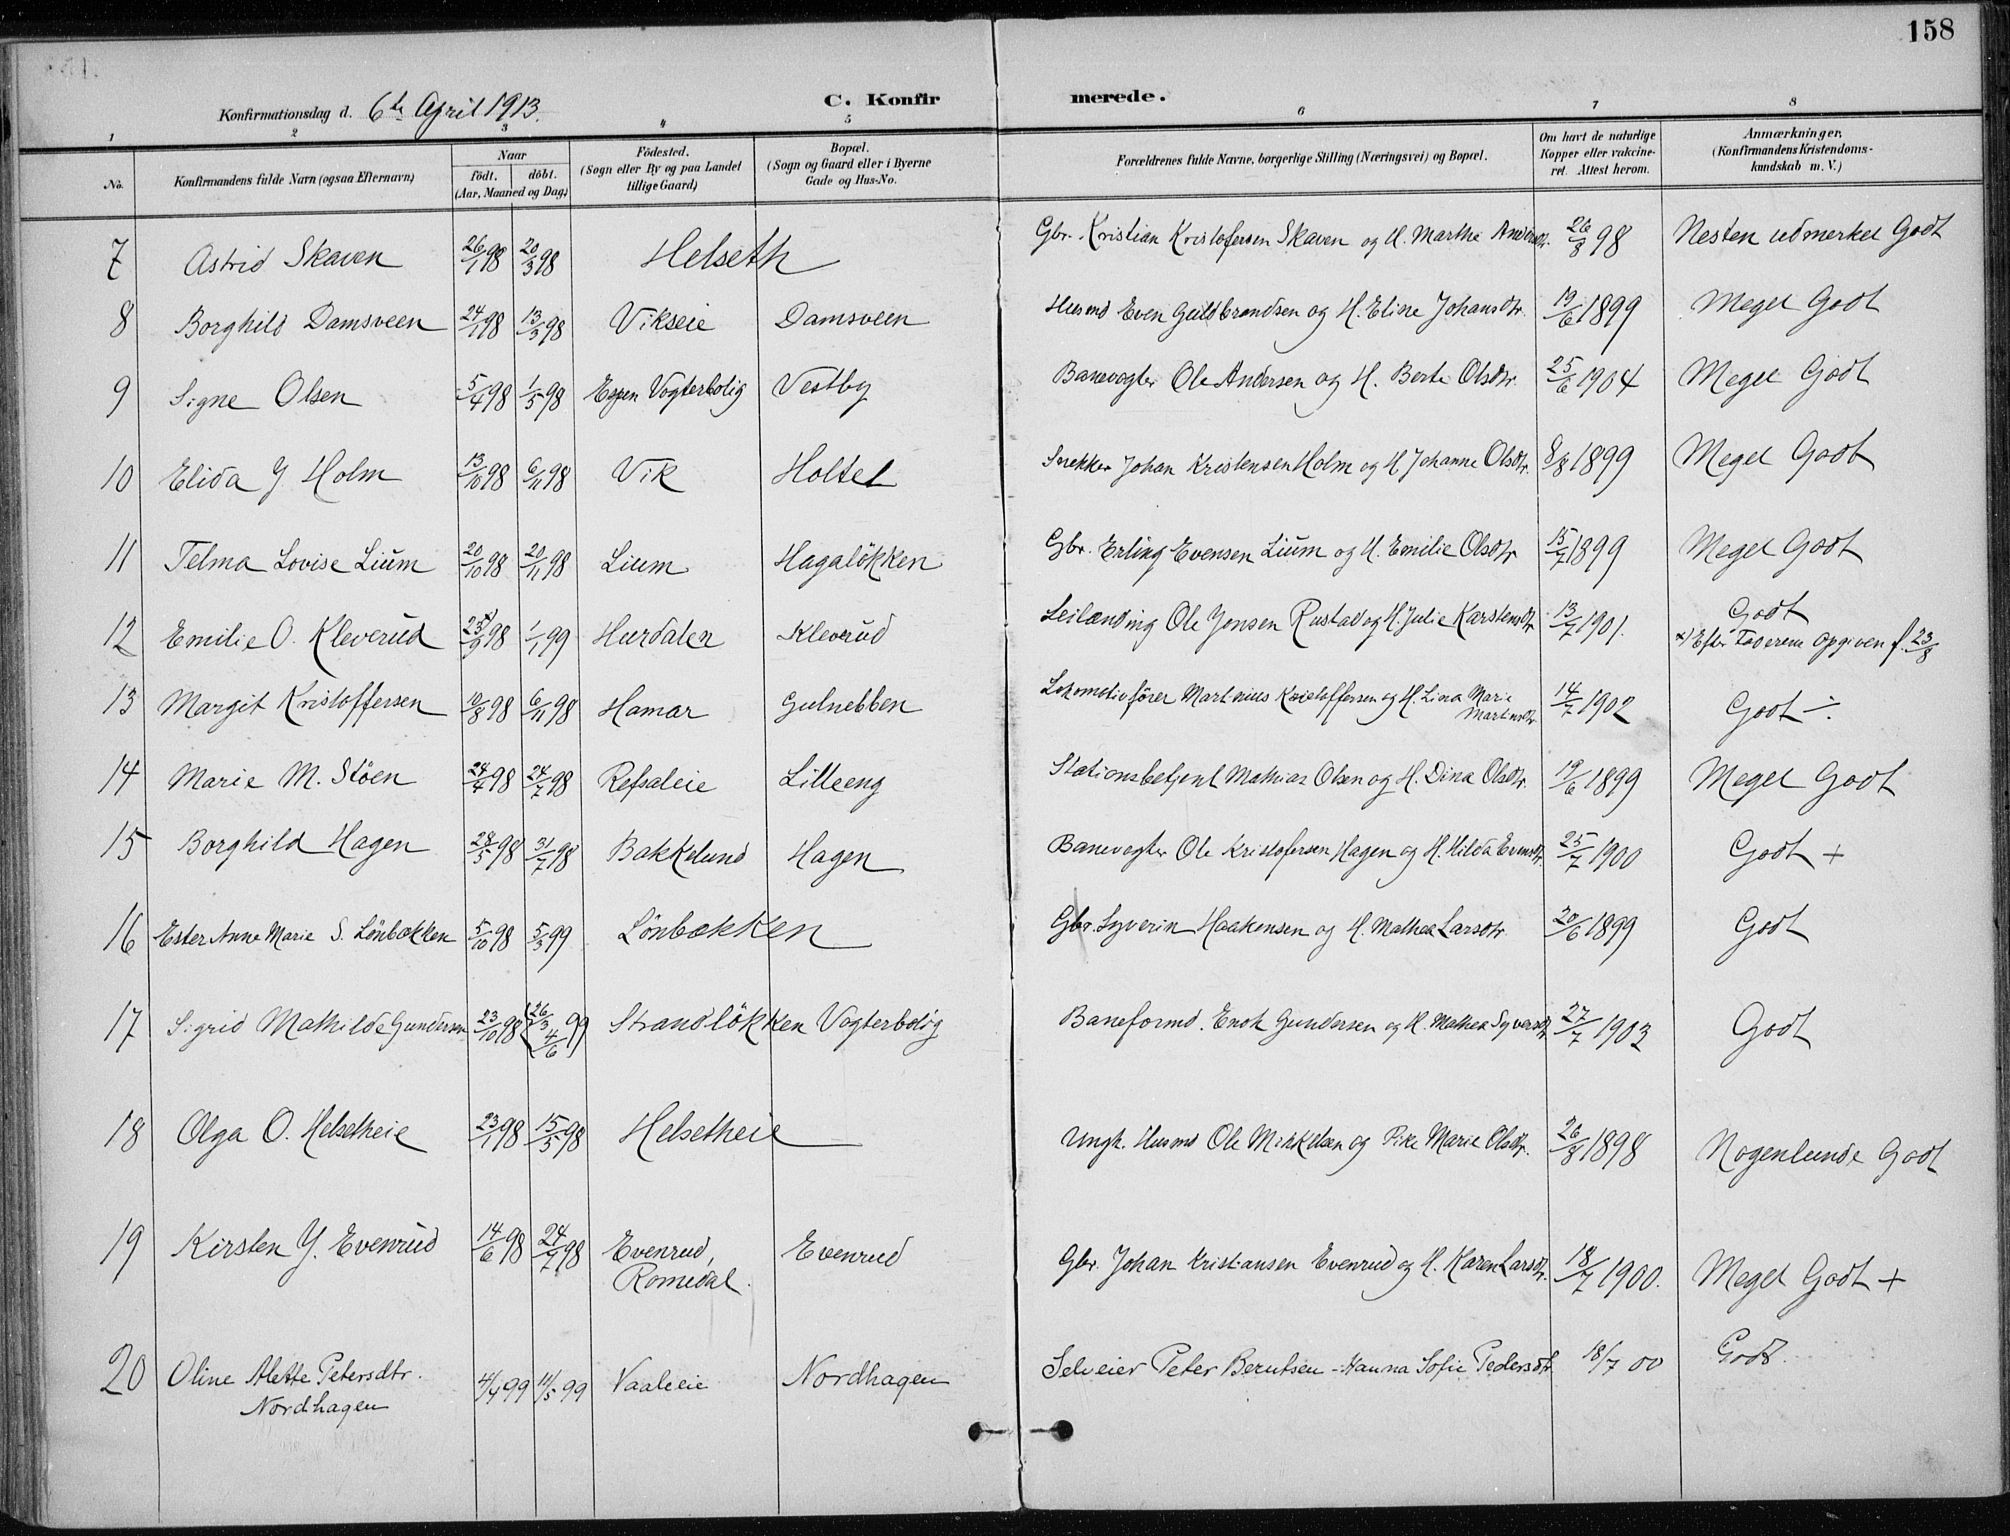 158
Konfirmationsdag d. 6te April 1913. C. Konfirmerede.
1 2 3 4 5 6 7 8
No. Konfirmandens fulde Navn (ogsaa Efternavn) Naar födt. döbt. (Aar, Maaned og Dag.) Födested. (Sogn eller By og paa Landet tillige Gaard) Bopæl. (Sogn og Gaard eller i Byerne Gade og Hus-No. Forældrenes fulde Navne, borgerlige Stilling (Næringsvei) og Bopæl. Om havt de naturlige Kopper eller vaccineret. Attest herom. Anmærkninger. (Konfirmandens Kristendomskundskab m. V.)
7 Astrid Skaven 26/1 98 20/3 98 Helseth Gbr. Kristian Kristofersen Skaven og H. Marthe Andersdtr. 26/8 98 Nesten udmerket Godt
8 Borghild Damsveen 24/1 98 13/3 98 Vikseie Damsveen Husmd Even Guldbrandsen og H. Eline Johansdtr. 19/6 1899 Meget Godt
9 Signe Olsen 5/4 98 1/5 98 Espen Vogterbolig Vestby Banevogter Ole Andersen og H. Berte Olsdtr. 25/6 1904 Meget Godt
10 Elida J Holm 13/10 98 6/11 98 Vik Holtet Snekker Johan Kristensen Holm og H Johanne Olsdtr. 8/8 1899 Meget Godt
11 Telma Lovise Lium 20/10 98 20/11 98 Lium Hagalökken Gbr. Erling Evensen Lium og H. Emilie Olsdtr 15/7 1899 Meget Godt
12 Emilie O. Kleverud 23/9 x) 98 1/1 99 Hurdalen Kleverud Leilænding Ole Jensen Rustad og H. Julie Karstensdtr 13/7 1901. Godt
x) Efter Faderens opgiven f. 23/8
13 Margit Kristoffersen 10/8 98 6/11 98 Hamar Gulnebben Lokomotivförer Martinius Kristoffersen og H. Lina Marie Martinsdtr. 14/7 1902 Godt ÷
14 Marie M. Stöen 24/4 98 24/7 98 Refsaleie Lilleeng Stationsbetjent Mathias Olsen og H. Dina Olsdtr. 19/6 1899 Meget Godt
15 Borghild Hagen 28/5 98 31/7 98 Bakkelund Hagen Banevogter Ole Kristofersen Hagen og H. Hilda Evensdtr. 25/7 1900 Godt +
16 Ester Anne Marie S. Lönbækken 5/10 98 5/3 99 Lönbækken Gbr. Syverin Haakensen og H. Mathea Larsdtr. 20/6 1899 Godt
17 Sigrid Mathilde Gundersen 23/10 98 { 26/3 4/6 99 Strandlökken Vogterbolig Baneformd. Enok Gundersen og H. Mathea Syversdtr 27/7 1903 Godt
18 Olga O. Helsetheie 23/1 98 15/5 98 Helsetheie Ungk. Husmd Ole Mikkelsen og Pike Marie Olsdtr. 26/8 1898 Nogenlunde Godt
19 Kirsten J. Evenrud 14/6 98 24/7 98 Evenrud, Romedal. Evenrud Gbr. Johan Kristiansen Evenrud og H. Karen Larsdtr. 18/7 1900. Meget Godt +
20 Oline Alette Petersdtr. Nordhagen 4/4 99 11/5 99 Vaaleeie Nordhagen Selveier Peter Berntsen - Hanna Sofie Pedersdtr 18/7 00 Godt.